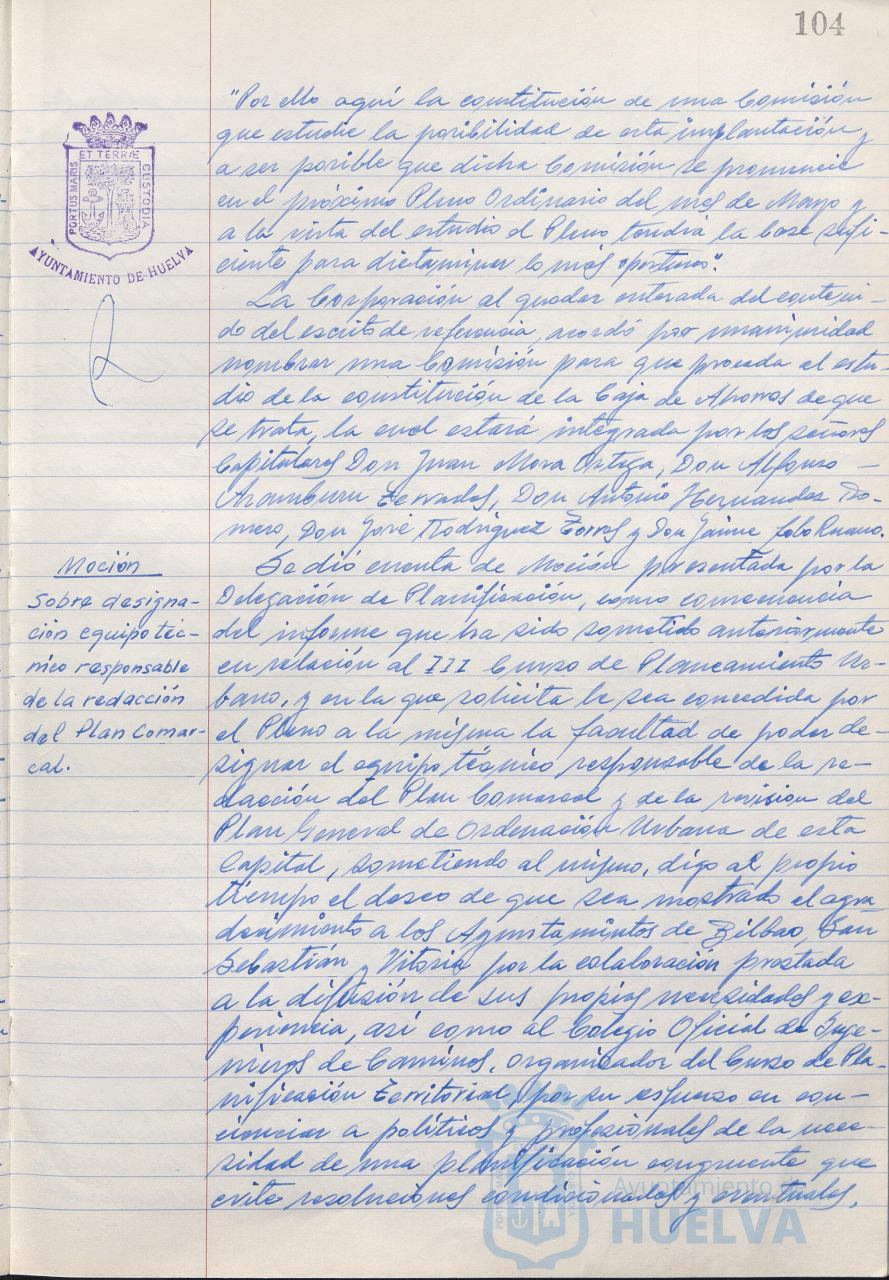 104
"Por ello aquí la constitución de una Comisión
que estudie la posibilidad de esta implantación y
a ser posible que dicha Comisión se pronuncie
en el próximo Pleno Ordinario del mes de Mayo y
a la vista del estudio el Pleno tendría la base sufi-
ciente para dictaminar lo más oportuno".
La Corporación al quedar enterada del conteni-
do del escrito de referencia, acordó por unanimidad
nombrar una Comisión para que proceda al estu-
dio de la constitución de la Caja de Ahorros de que
se trata, la cual estará integrada por los señores
Capitulares Don Juan Mora Ortega, Don Alfonso
Aramburu Terrades, Don Antonio Hernandez Ro-
mero, Don José Rodriguez Torres y Don Jaime Lobo Ruano.
Se dió cuenta de Moción presentada por la
Delegación de Planificación, como consecuencia
del informe que ha sido sometido anteriormente
en relación al III Curso de Planeamiento Ur-
bano, y en la que solicita le sea concedida por
el Pleno a la misma la facultad de poder de-
signar el equipo técnico responsable de la re-
dacción del Plan Comarcal y de la revision del
Plan General de Ordenación Urbana de esta
Capital, sometiendo al mismo, digo al propio
tiempo el deseo de que sea mostrado el agra-
decimiento a los Ayuntamientos de Bilbao, San
Sebastián y Vitoria por la colaboracion prestada
a la difusión de sus propias necesidades y ex-
periencia, así como al Colegio Oficial de Inge-
nieros de Caminos, organizador del Curso de Pla-
nificación Territorial, por su esfuerzo en con-
cienciar a políticos y profesionales de la nece-
sidad de una planificación congruente que
evite resoluciones condicionadas y eventuales,
Moción
Sobre designa-
ción equipo téc-
nico responsable
de la redacción
del Plan Comar-
cal.
PORTUS MARIS ET TERRÆ CUSTODIA
AYUNTAMIENTO DE HUELVA
Ayuntamiento de
HUELVA